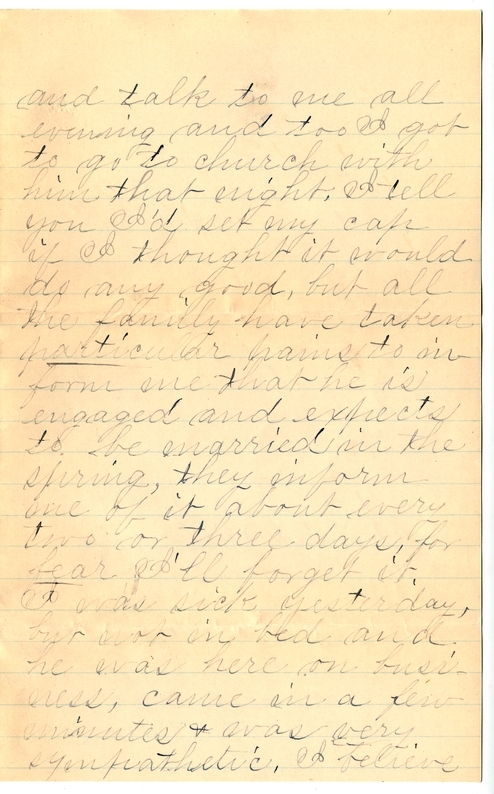 and talk to me all
evening and too I got
to go to church with
him that night. I tell
you I'd set my cap
if I thought it would
do any good, but all
the family have taken
particular pains to in-
form me that he is
engaged and expects
to be married in the
spring, they inform
one of it about every
two or three days, for
fear I'll forget it.
I was sick yesterday,
but not in bed and
he was here on busi-
ness, came in a few
minutes & was very
sympathetic. I believe